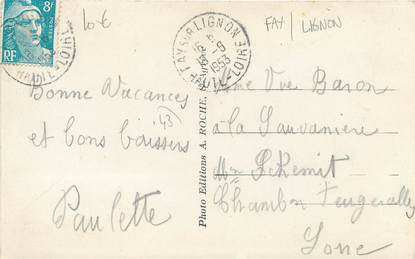 8F
10 €
FAY-SUR-LIGNON
6-8
1953
HTE LOIRE
FAY / LIGNON
Bonne Vacances
et bons baisers
43
Paulette
Photo Editions A. ROCHE,
Mme Vve Baron
à la Sauvanière
Mn Schemit
Chambon Feugerolles
Loire